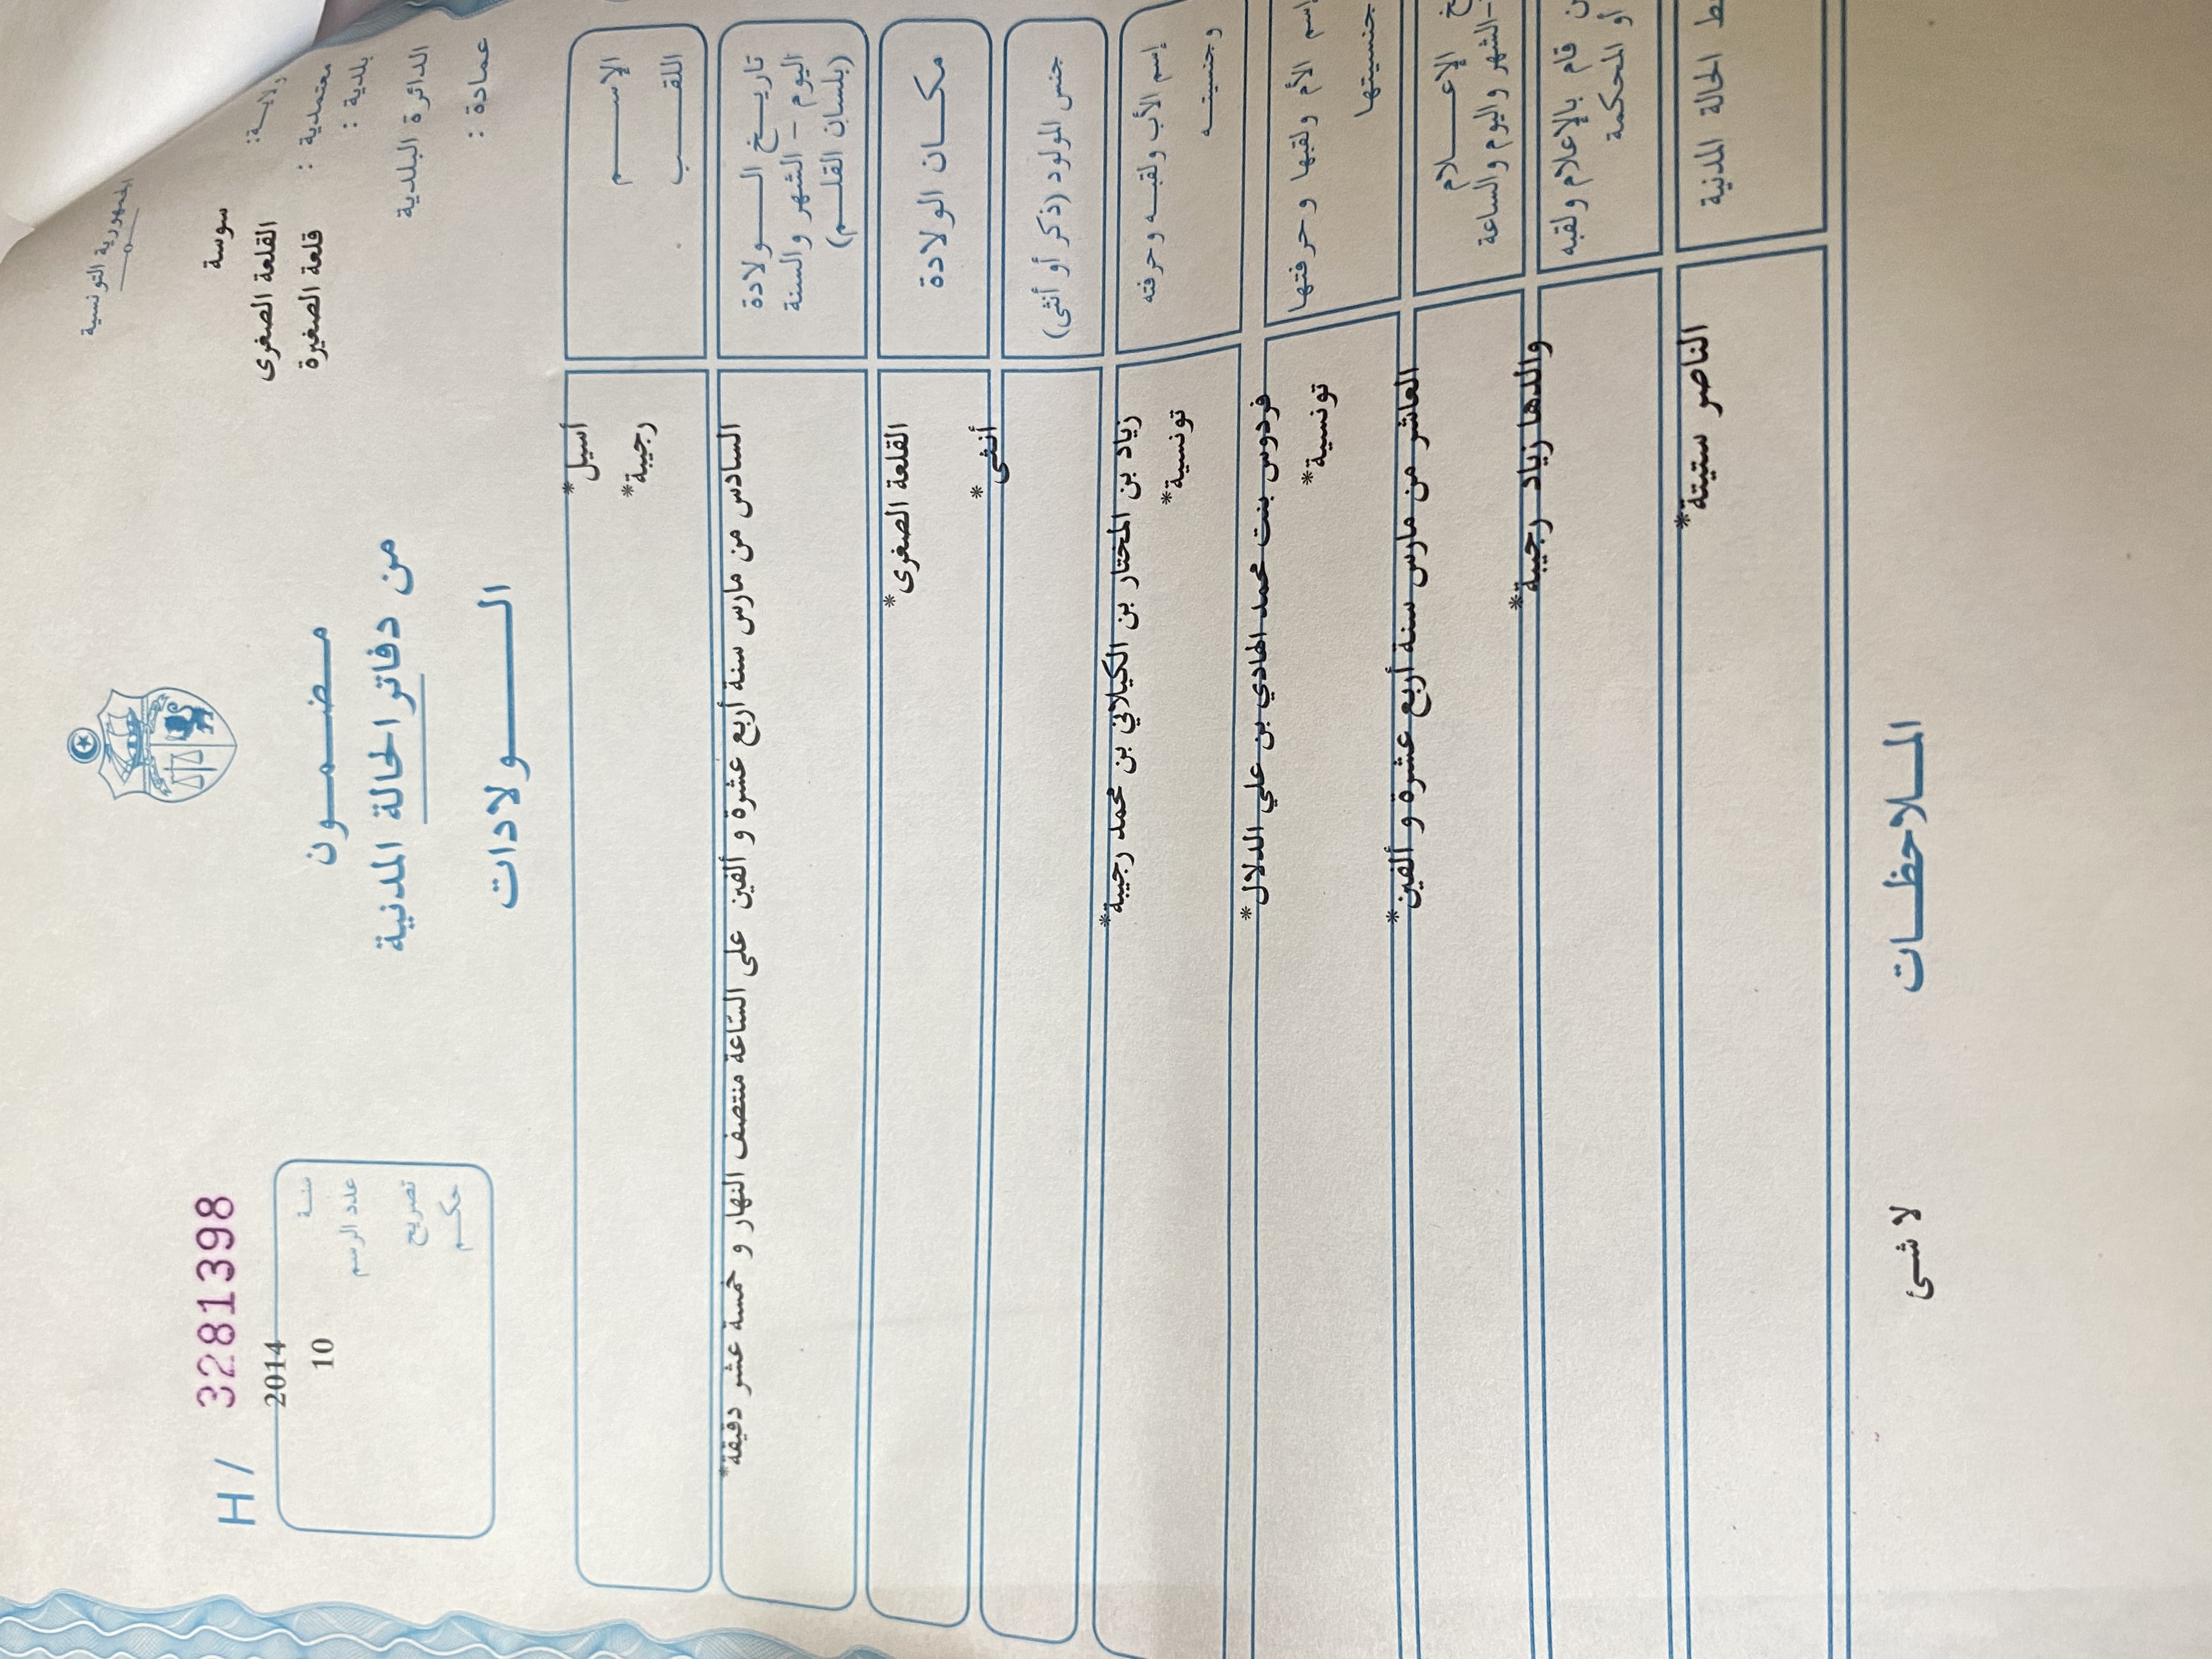 الجمهورية التونسية
ولاية: سوسة
معتمدية : القلعة الصغرى
بلدية : قلعة الصغيرة
الدائرة البلدية
عمادة :
مضمون
من دفاتر الحالة المدنية
الولادات
H / 3281398
سنة 2014
عدد الرسم 10
تصريح
حكم
الإسم أسيل*
اللقب رجيبة*
تاريخ الولادة
اليوم - الشهر والسنة
(بلسان القلم)
السادس من مارس سنة أربع عشرة و ألفين على الساعة منتصف النهار و خمسة عشر دقيقة*
مكان الولادة القلعة الصغرى*
جنس المولود (ذكر أو أنثى) أنثى *
إسم الأب ولقبه وحرفته زياد بن المختار بن الكيلاني بن محمد رجيبة*
وجنسيته تونسية*
إسم الأم ولقبها وحرفتها فردوس بنت محمد الهادي بن علي الدلال*
جنسيتها تونسية*
الإعلام
-الشهر واليوم والساعة
العاشر من مارس سنة أربع عشرة و ألفين*
قام بالإعلام ولقبه
أو المحكمة
والدها زياد رجيبة*
الحالة المدنية الناصر ستيتة*
الملاحظات
لا شئ